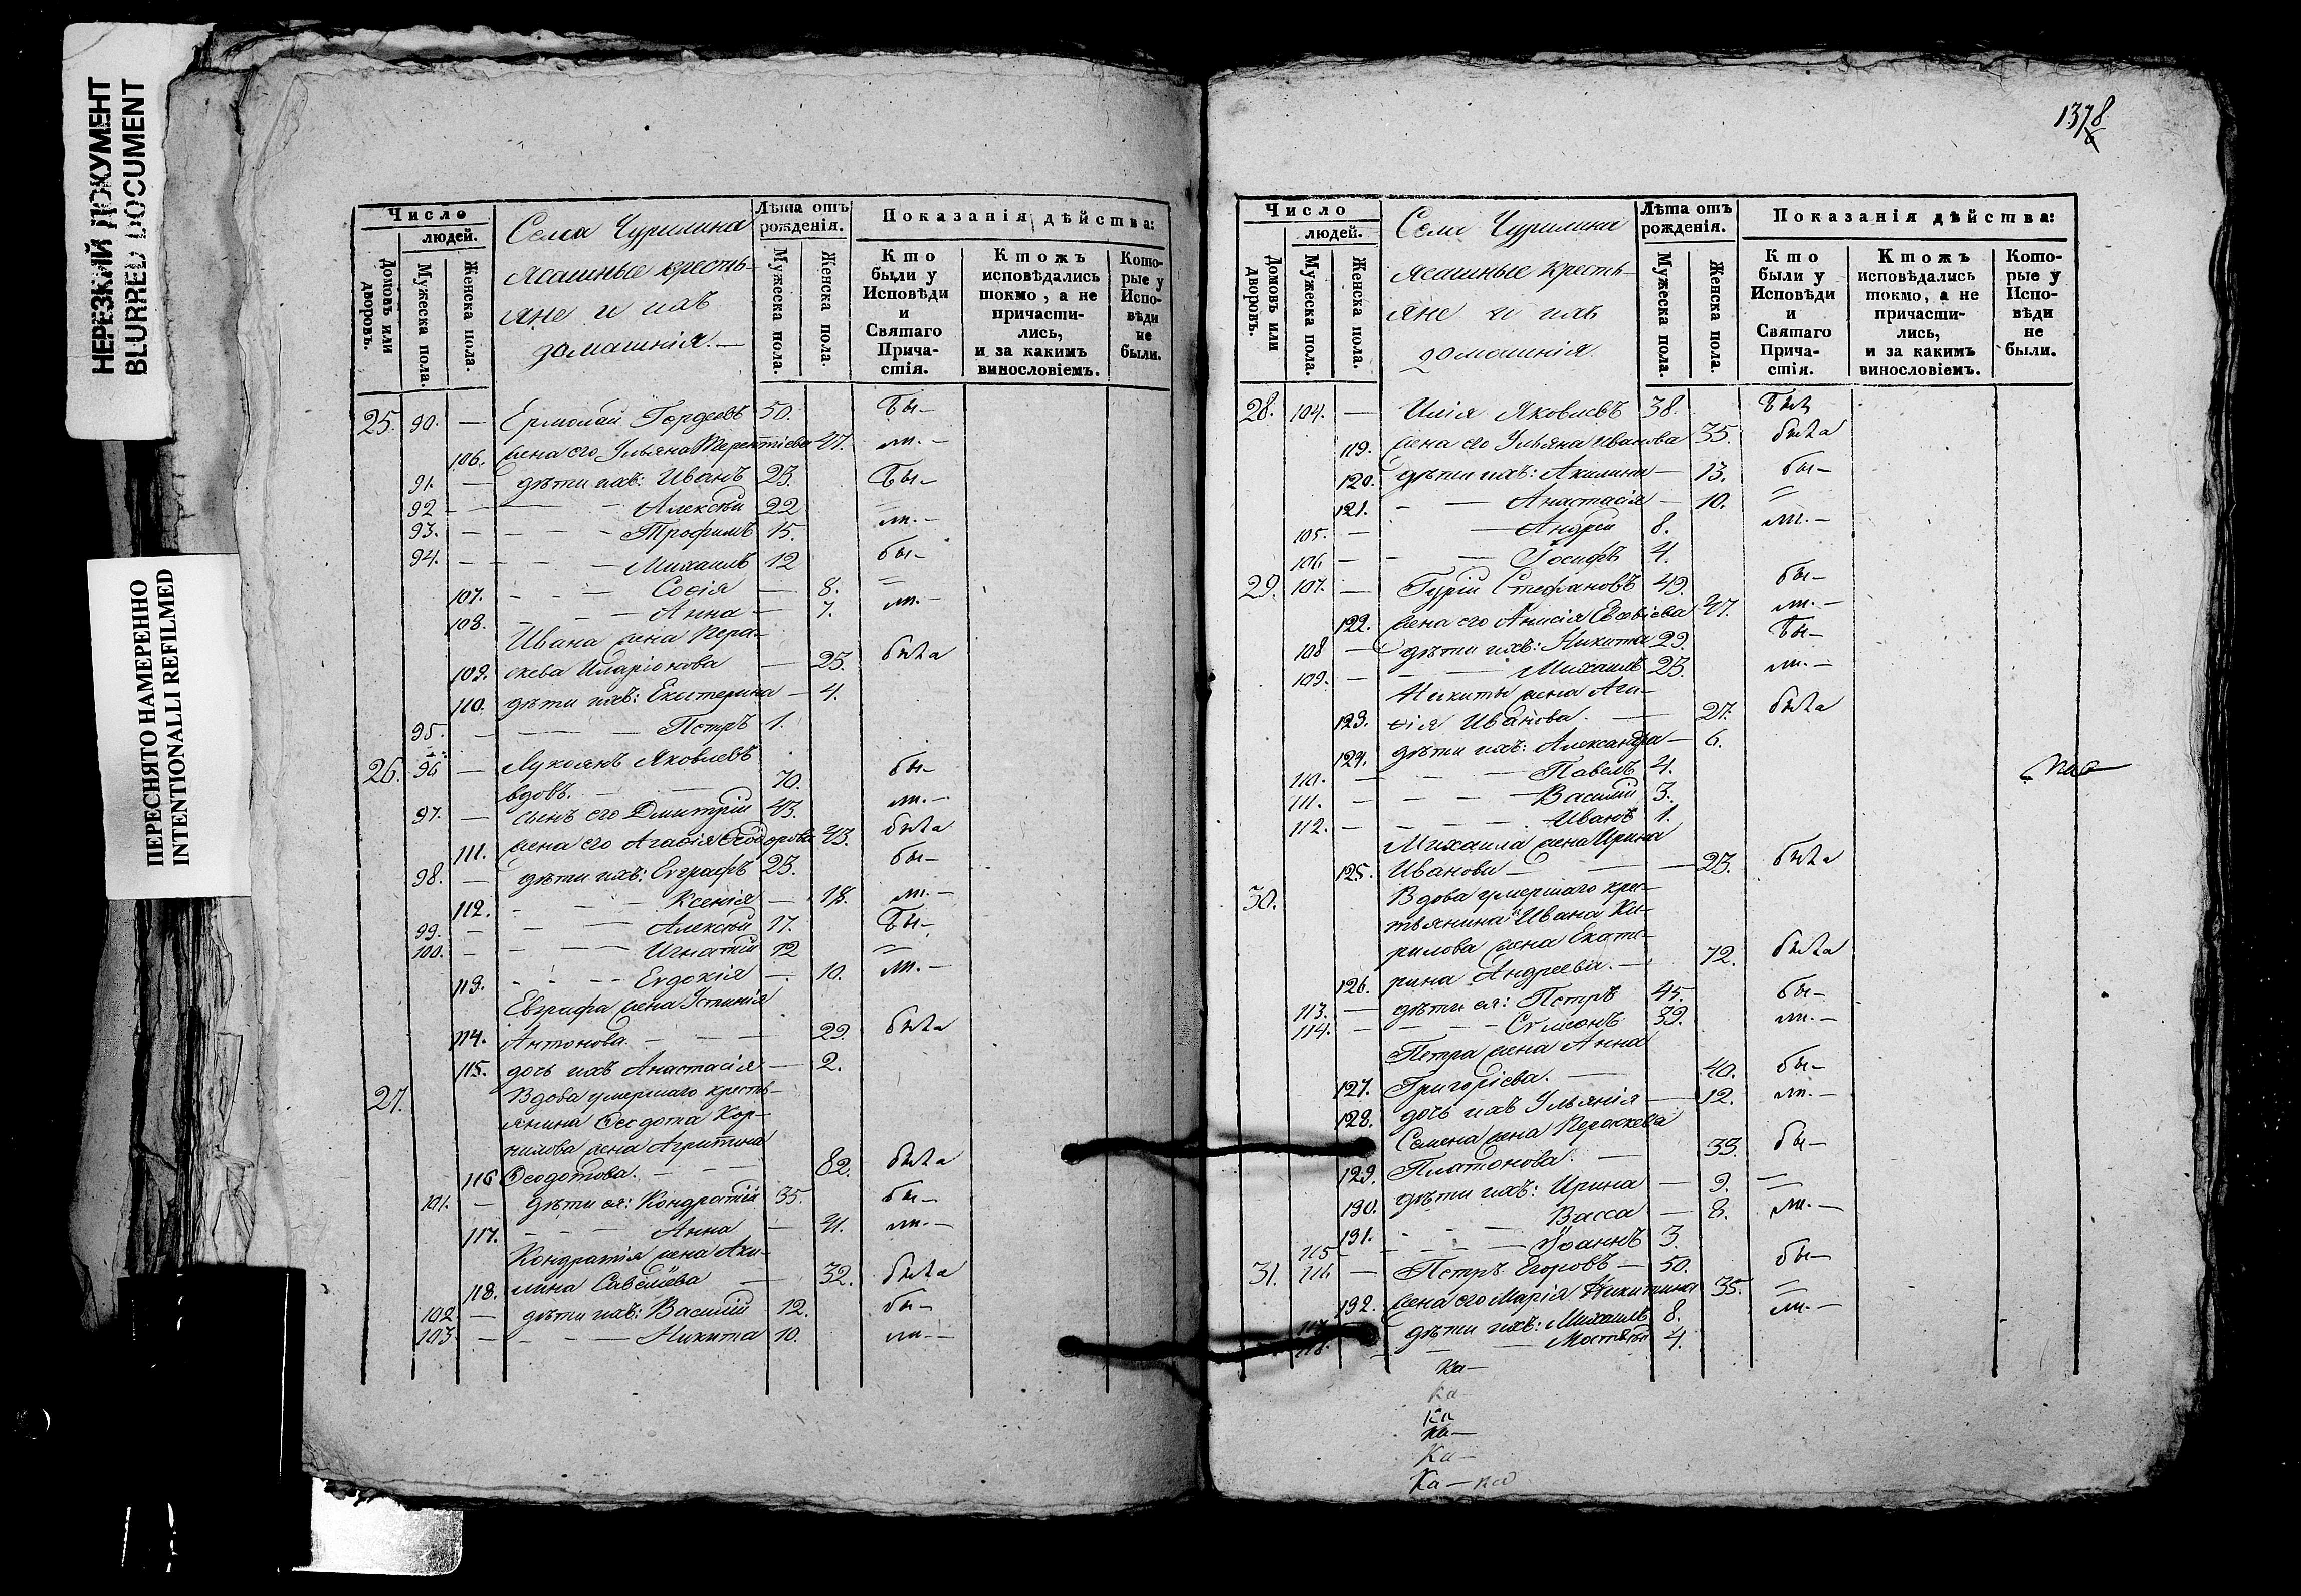 НЕРЕЗКИЙ ДОКУМЕНТ
BLURRED DOCUMENT
ПЕРЕСНЯТО НАМЕРЕННО
INTENTIONALLI REFILMED
Число
людей.
Домовъ или дворовъ.
Мужеска пола.
Женска пола.
Села Чурилина
ясашные кресть-
яне и ихъ
домашнія. —
Лѣта отъ рожденія.
Мужеска пола.
Женска пола.
Показанія дѣйства:
Кто были у Исповѣди и Святаго Прича-стія.
Ктожъ исповѣдались токмо, а не причасти-лись, и за какимъ винословіемъ.
Кото-рые у Испо-вѣди не были.
25. 90. — Ермолай Гордеевъ 50. бы-
106. жена его Ульяна Терентіева 47. ли. —
91. — дѣти ихъ: Иванъ 23. бы-
92 — Алексѣй 22 =
93. — Трофимъ 15. ли. —
94. — Михаилъ 12 бы-
107. — Софія — 8. =
108. — Анна — 7. ли. —
Ивана жена Пера-
109. скева Иларіонова — 23. была
110. дѣти ихъ: Екатерина — 4.
95. — Петръ 1.
26. 96 — Лукоянъ Яковлевъ
вдовъ. — 70. бы-
97. — сынъ его Дмитрій 43. ли. —
111. жена его Агафія Ѳеодорова 43. была
98. — дѣти ихъ: Евграфъ 23. бы-
112. — Ксенія — 18. ли. —
99. — Алексѣй 17. бы-
100. — Игнатій 12 =
113. — Евдокія — 10. ли. —
Евграфа жена Устинія
114. Антонова. — 22. была
115. дочь ихъ Анастасія — 2.
27. Вдова умершаго кресть-
янина Ѳеодота Кор-
нилова жена Агрипина
116 Ѳеодотова. — 82. была
101. — дѣти ея: Кондратій 35. бы-
117. — Анна — 41. ли. —
Кондратія жена Аку-
118. лина Савельева — 32. была
102. — дѣти ихъ: Василій 12. бы-
103. — Никита 10. ли. —
1378
Число
людей.
Домовъ или дворовъ.
Мужеска пола.
Женска пола.
Села Чурилина
ясашные кресть-
яне и ихъ
домашнія.
Лѣта отъ рожденія.
Мужеска пола.
Женска пола.
Показанія дѣйства:
Кто были у Исповѣди и Святаго Прича-стія.
Ктожъ исповѣдались токмо, а не причасти-лись, и за какимъ винословіемъ.
Кото-рые у Испо-вѣди не были.
28. 104. — Илія Яковлевъ 38. былъ
119. жена его Ульяна Иванова 35. была
120. дѣти ихъ: Акилина — 13. бы-
121. — Анастасія — 10. =
105. — Андрей 8. ли. —
106 — Іосифъ 4.
29. 107. — Гурій Стефановъ 49. бы-
122. жена его Анисія 47. ли. —
108 — дѣти ихъ: Никита 29. бы-
109. — Михаилъ 23. ли. —
Никиты жена Ага-
123. фія Иванова. — 27. была
124. дѣти ихъ: Александра — 6.
110. — Павелъ 4.
111. — Василій 3.
112. — Иванъ 1.
Михаила жена Ирина
125. Иванова — 23. была
30. Вдова умершаго кре-
стьянина Ивана Ки-
рилова жена Екате-
126. рина Андреева. — 72. была
113. — дѣти ея: Петръ 45. бы-
114. — Симеонъ 39. ли. —
Петра жена Анна
127. Григоріева. — 40. бы-
128. дочь ихъ Ульянія — 12. ли. —
Семена жена Пераскева
129. Платонова. — 33. бы-
130. дѣти ихъ: Ирина — 9. =
131. — Васса — 8. ли. —
115 — Іоаннъ 3.
31. 116 — Петръ Егоровъ — 50. бы-
132. жена его Марія Никитина 35. =
117. дѣти ихъ: Михаилъ 8. ли. —
118. — Матвѣй 4.
Ка-
Ка
Ка
Ка-
Ка-
Ка-